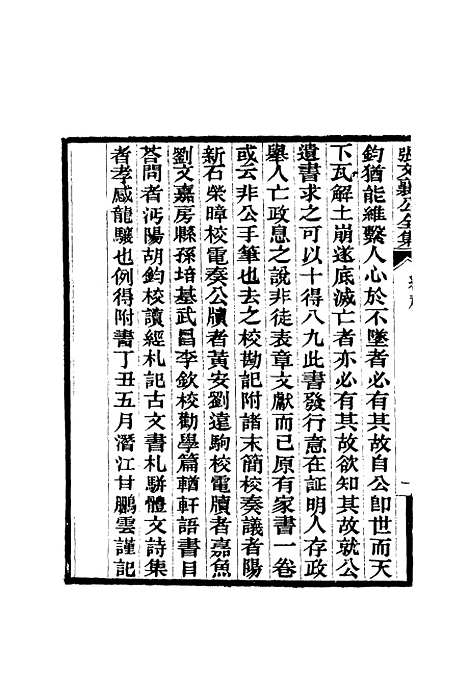 張文襄公全集
鈞猶能維繫人心於不墜者必有其故自公卽世而天
下瓦解土崩遂底滅亡者亦必有其故欲知其故就公
遺書求之可以十得八九此書發行意在証明人存政
舉人亡政息之說非徒表章文獻而已原有家書一卷
或云非公手筆也去之校勘記附諸末簡校奏議者陽
新石榮暲校電奏公牘者黃安劉遠駒校電牘者嘉魚
劉文嘉房縣孫培基武昌李欽校勸學篇輶軒語書目
荅問者沔陽胡鈞校讀經札記古文書札駢體文詩集
者孝感龍驤也例得附書丁丑五月潛江甘鵬雲謹記